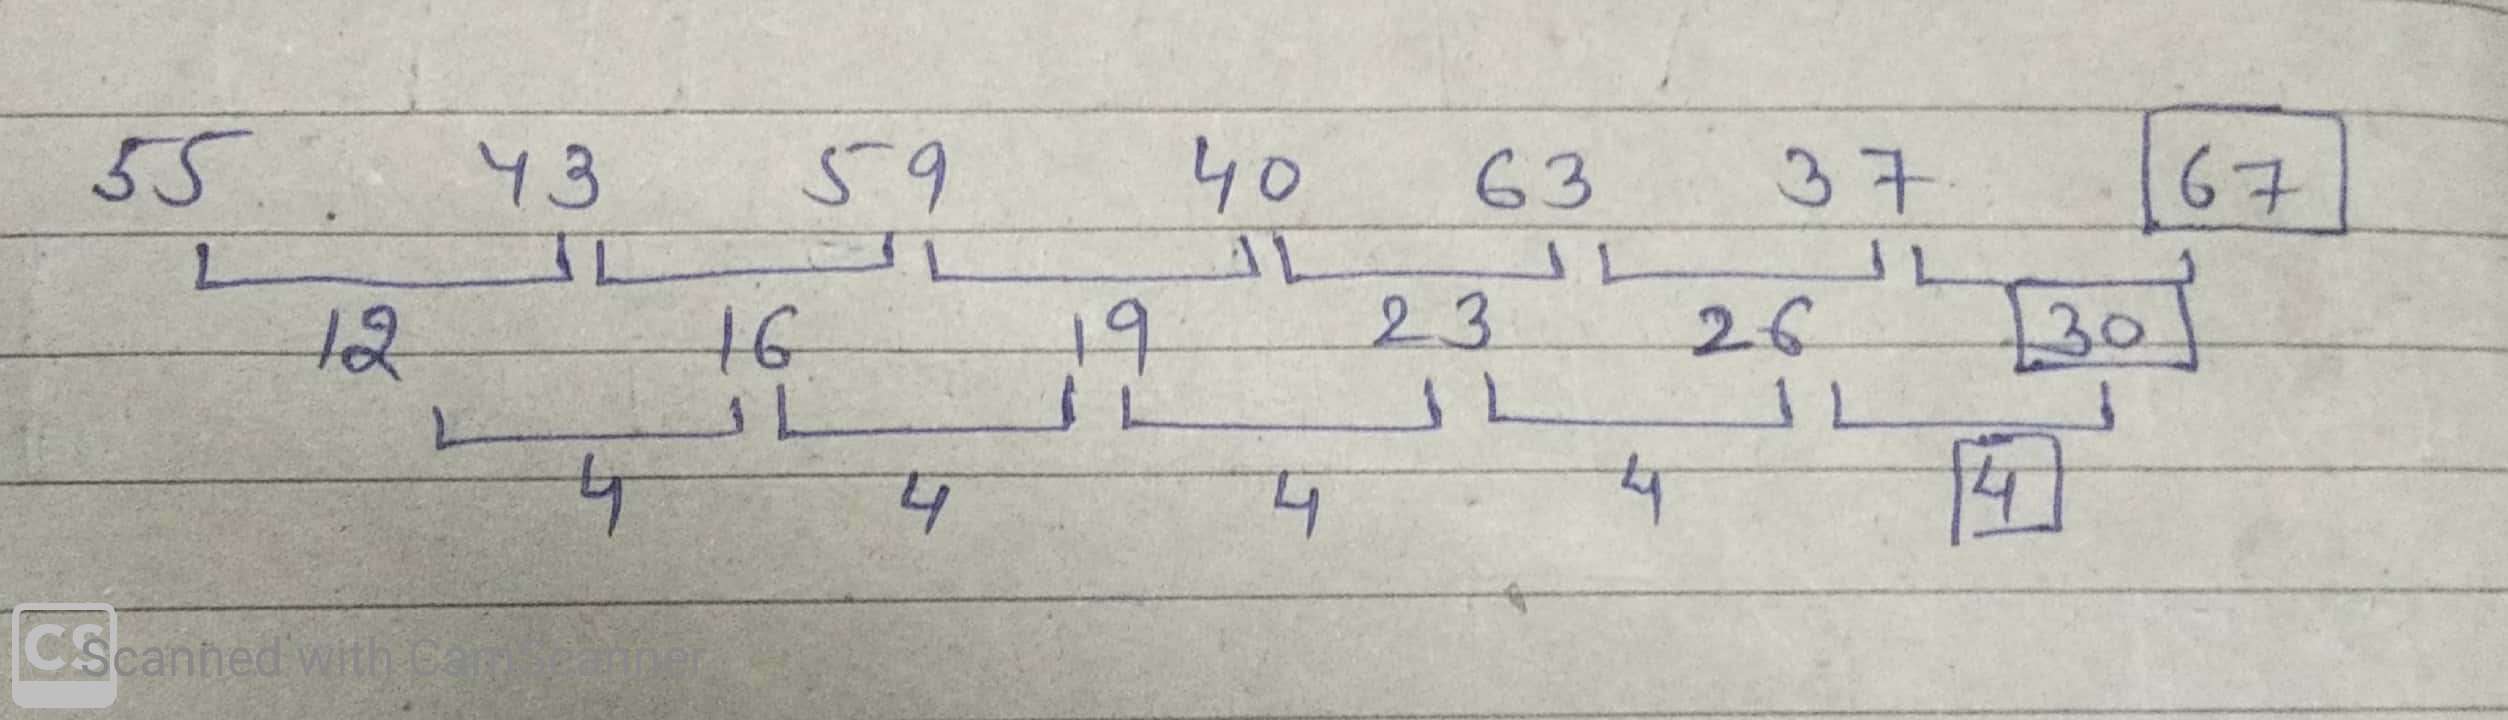 55 43 59 40 63 37 67
12 16 19 23 26 30
4 4 4 4 4
CS Scanned with CamScanner